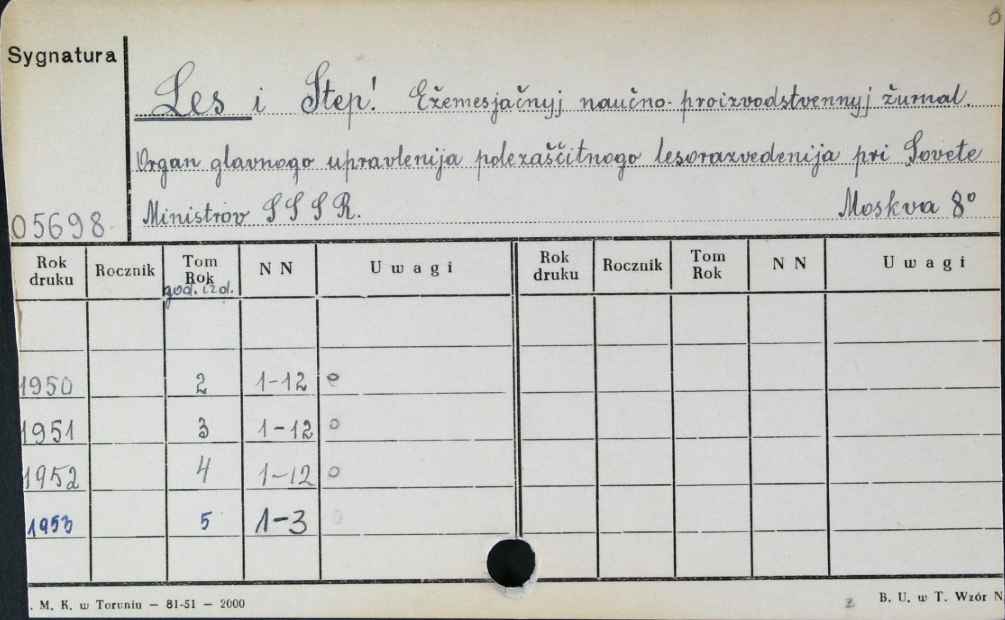 Sygnatura
Les i Step'. Ežemesjačnyj naučno-proizvodstvennyj žurnal.
Organ glavnogo upravlenija polezaščitnogo lesorazvedenija pri Sovete
05698 Ministrov SSSR. Moskva 8°
Rok druku Rocznik Tom Rok god. izd. N N Uwagi Rok druku Rocznik Tom Rok N N Uwagi
1950 2 1-12 o
1951 3 1-12 o
1952 4 1-12 o
1953 5 1-3 o
. M. K. w Toruniu — 81-51 — 2000 z B. U. w T. Wzór N